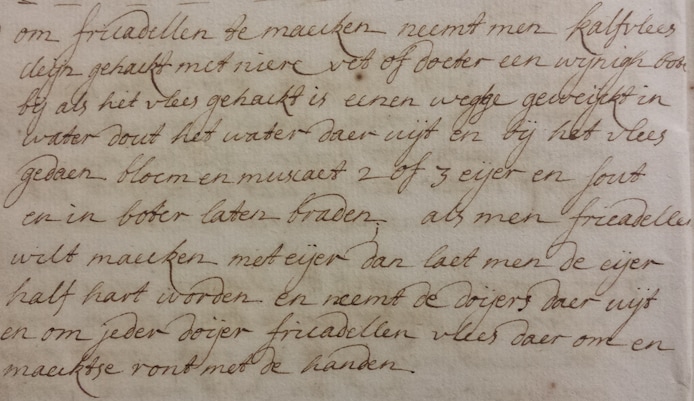 om fricadellen te maecken neemt men kalfvlees
cleijn gehackt met niere vet of doeter een wijnigh
bij als het vlees gehackt is eenen wegge geweijckt in
water dout het water daer uijt en bij het vlees
gedaen bloem en muscaet 2 of 3 eijer en sout
en in boter laten braden, als men fricadellen
wilt maecken met eijer dan laet men de eijer
half hart worden en neemt de doijers daer uijt
en om jeder doijer fricadellen vlees daer om en
maecktse ront met de handen.